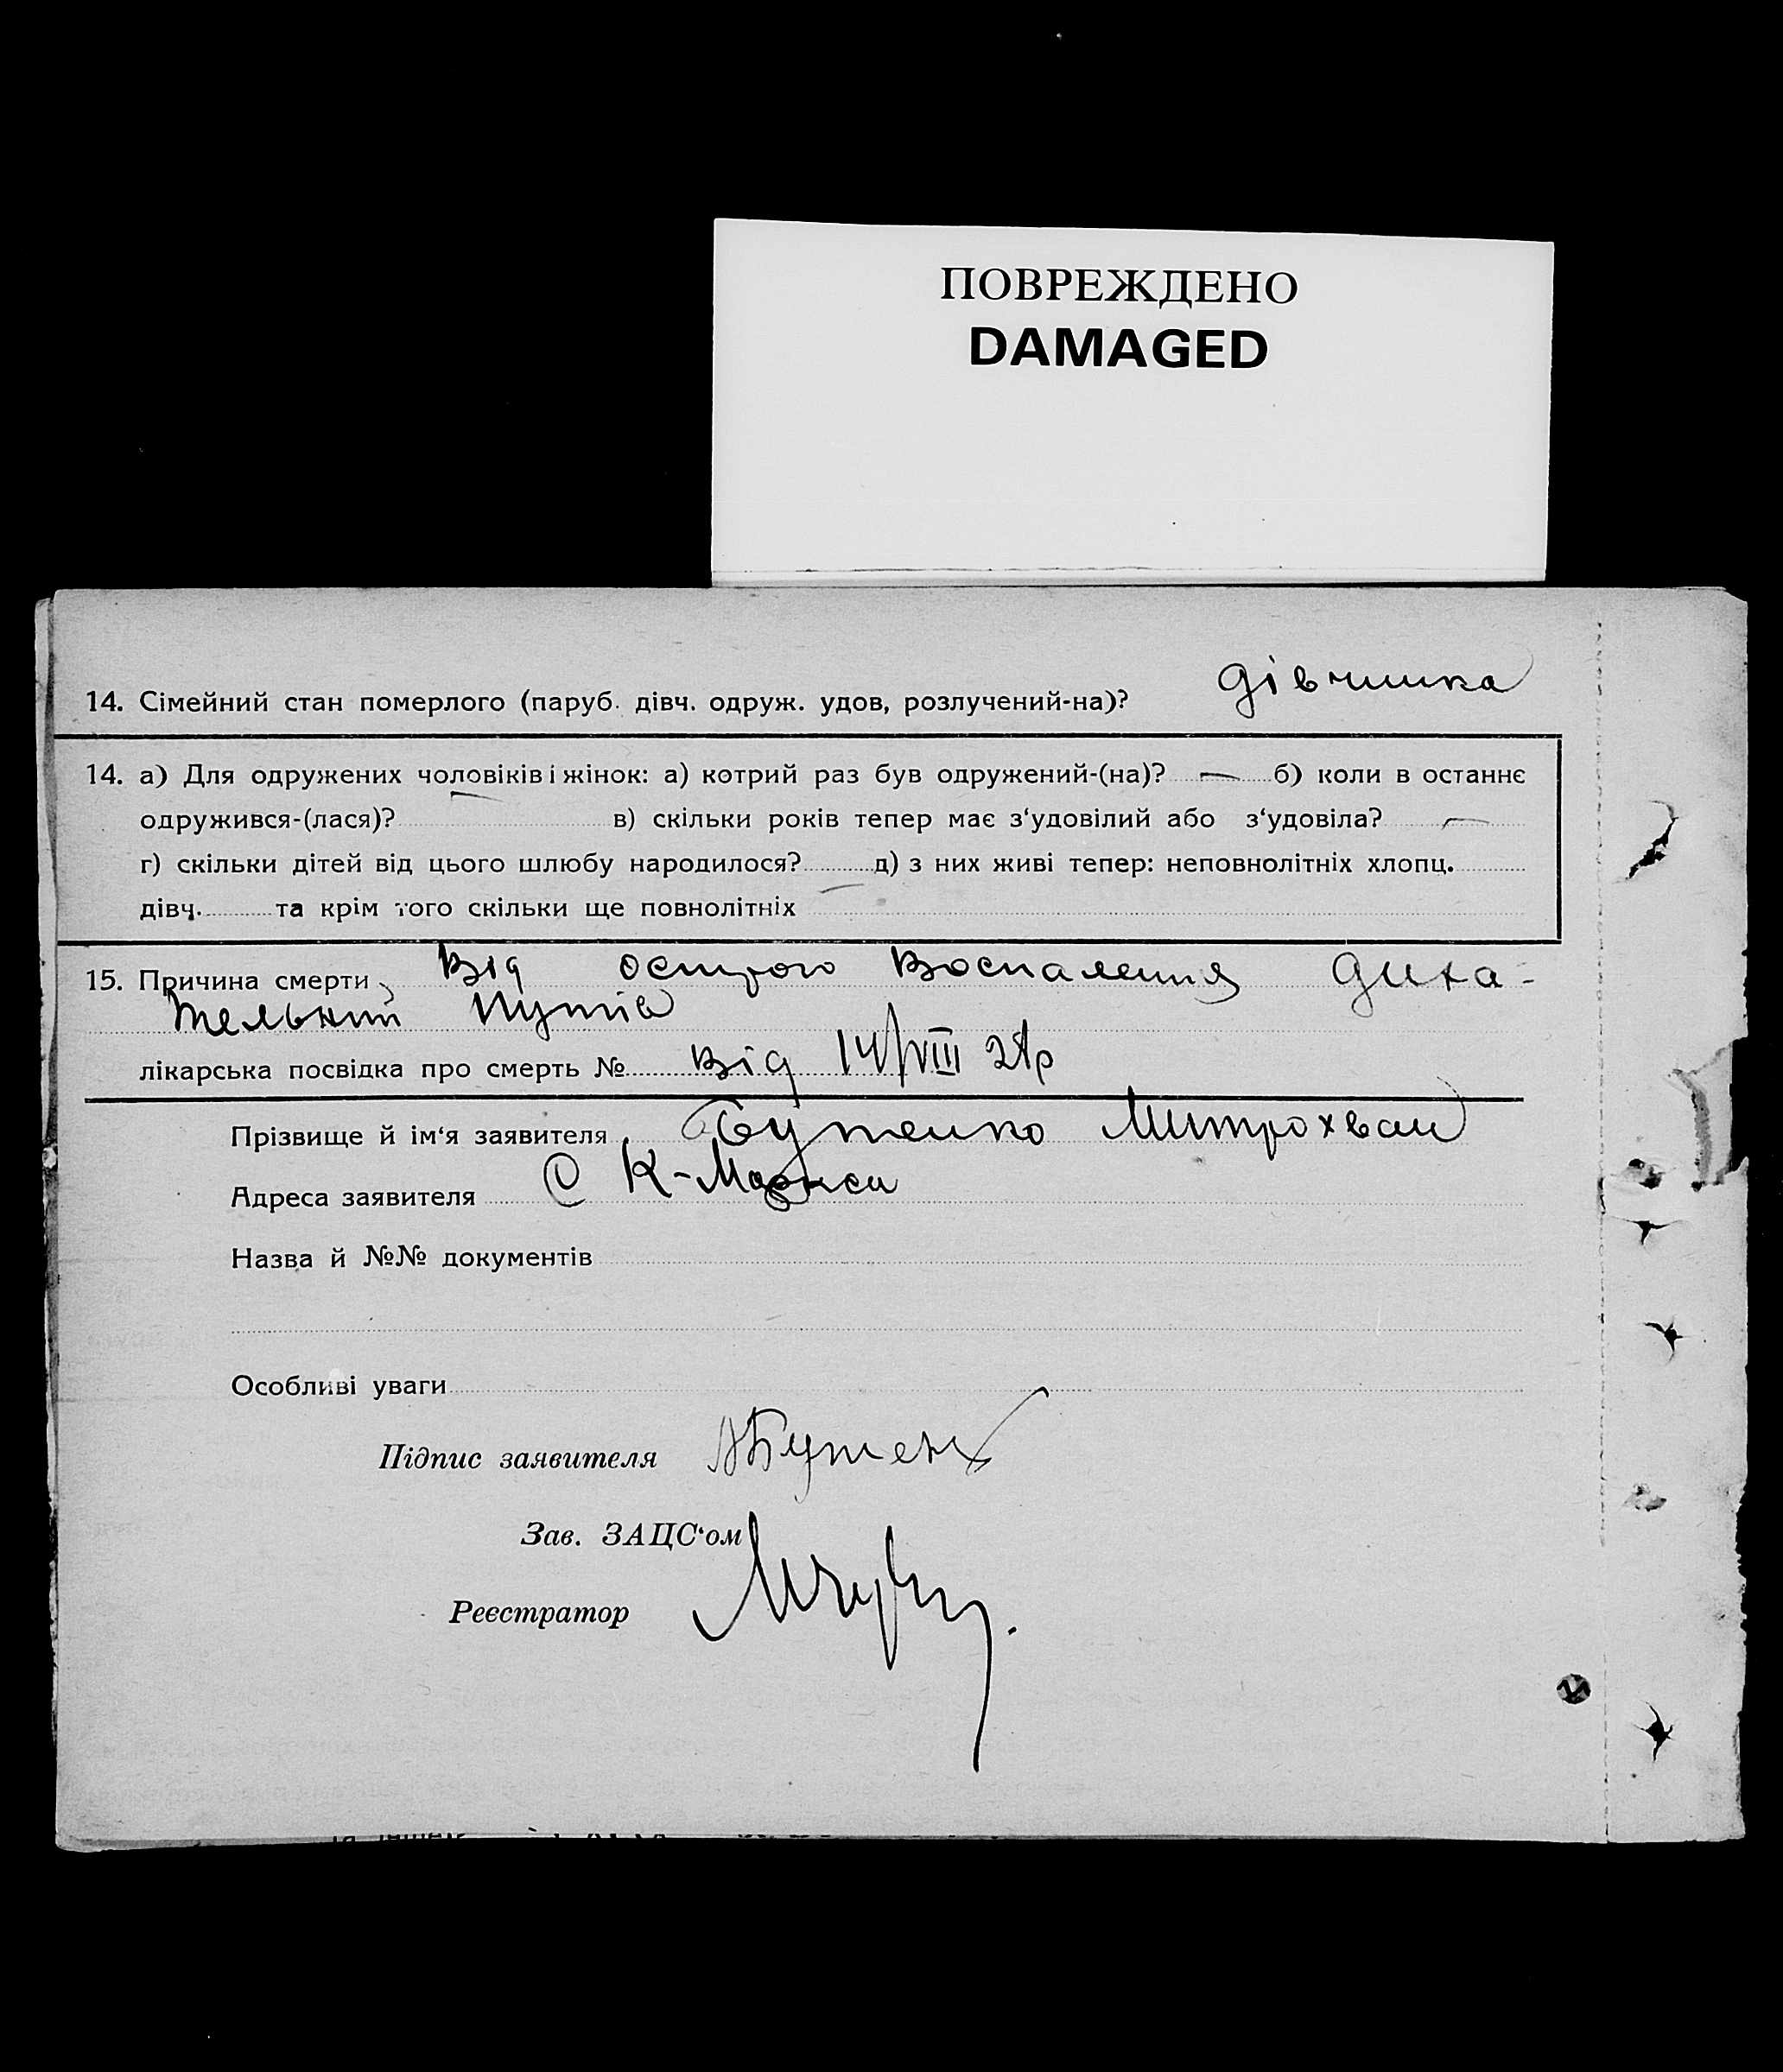 ПОВРЕЖДЕНО
DAMAGED
14. Сімейний стан померлого (паруб. дівч. одруж. удов, розлучений-на)? дівчинка
14. а) Для одружених чоловіків і жінок: а) котрий раз був одружений-(на)? — б) коли в останнє
одружився-(лася)? — в) скільки років тепер має з‘удовілий або з‘удовіла? —
г) скільки дітей від цього шлюбу народилося? — д) з них живі тепер: неповнолітніх хлопц.
дівч. та крім того скільки ще повнолітніх
15. Причина смерти, Від острого Воспаления диха-
тельний Путів
лікарська посвідка про смерть № Від 14/VIII 28р
Прізвище й ім‘я заявителя Бутенко Митрохван
Адреса заявителя С К-Маркса
Назва й №№ документів
Особливі уваги
Підпис заявителя Бутенк
Зав. ЗАЦС‘ом
Реєстратор